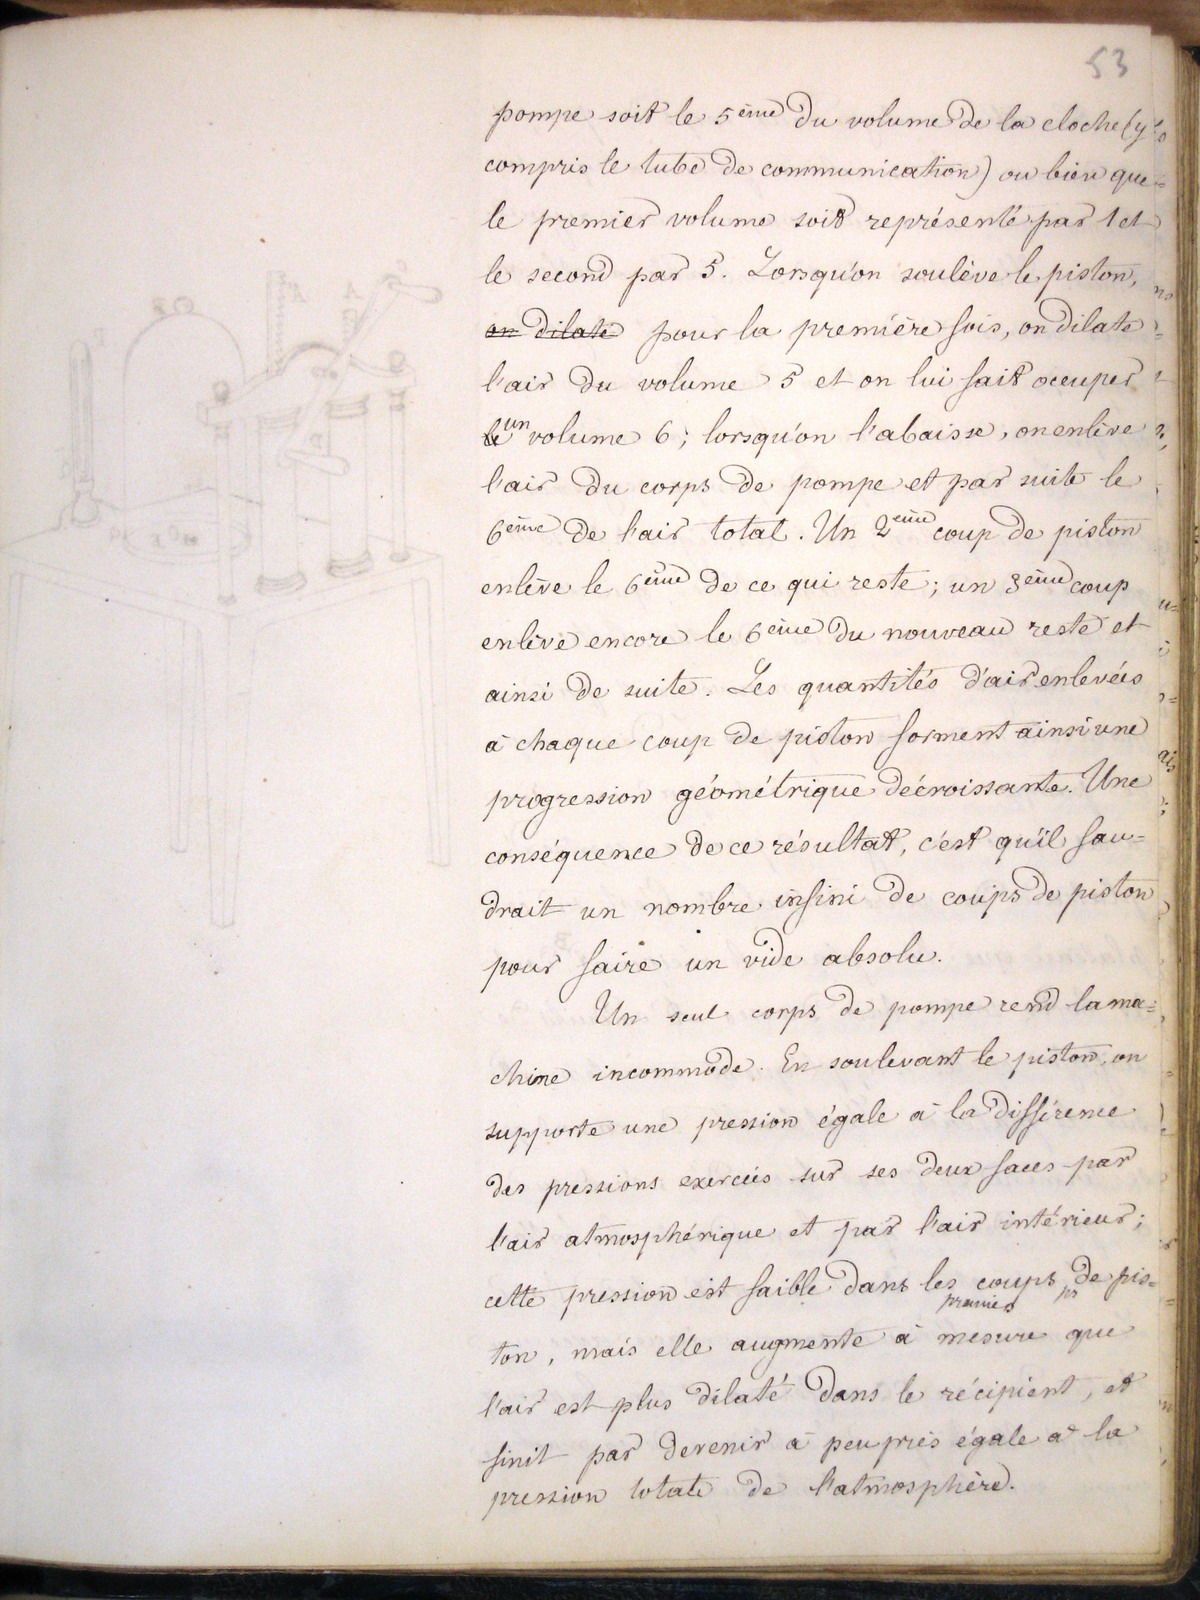 53
pompe soit le 5ème du volume de la cloche (y
compris le tube de communication) ou bien que
le premier volume soit représenté par 1 et
le second par 5. Lorsqu'on soulève le piston,
on dilate pour la première fois, on dilate
l'air du volume 5 et on lui fait occuper
le un volume 6 ; lorsqu'on l'abaisse, on enlève
l'air du corps de pompe et par suite le
6ème de l'air total. Un 2ème coup de piston
enlève le 6ème de ce qui reste ; un 3ème coup
enlève encore le 6ème du nouveau reste et
ainsi de suite. Les quantités d'air enlevées
à chaque coup de piston forment ainsi une
progression géométrique décroissante. Une
conséquence de ce résultat, c'est qu'il fau=
drait un nombre infini de coups de piston
pour faire un vide absolu.
Un seul corps de pompe rend la ma=
chine incommode. En soulevant le piston, on
supporte une pression égale à la différence
des pressions exercées sur ses deux faces par
l'air atmosphérique et par l'air intérieur ;
cette pression est faible dans les coups de pis=
premiers
ton, mais elle augmente à mesure que
l'air est plus dilaté dans le récipient, et
finit par devenir à peu près égale à la
pression totale de l'atmosphère.